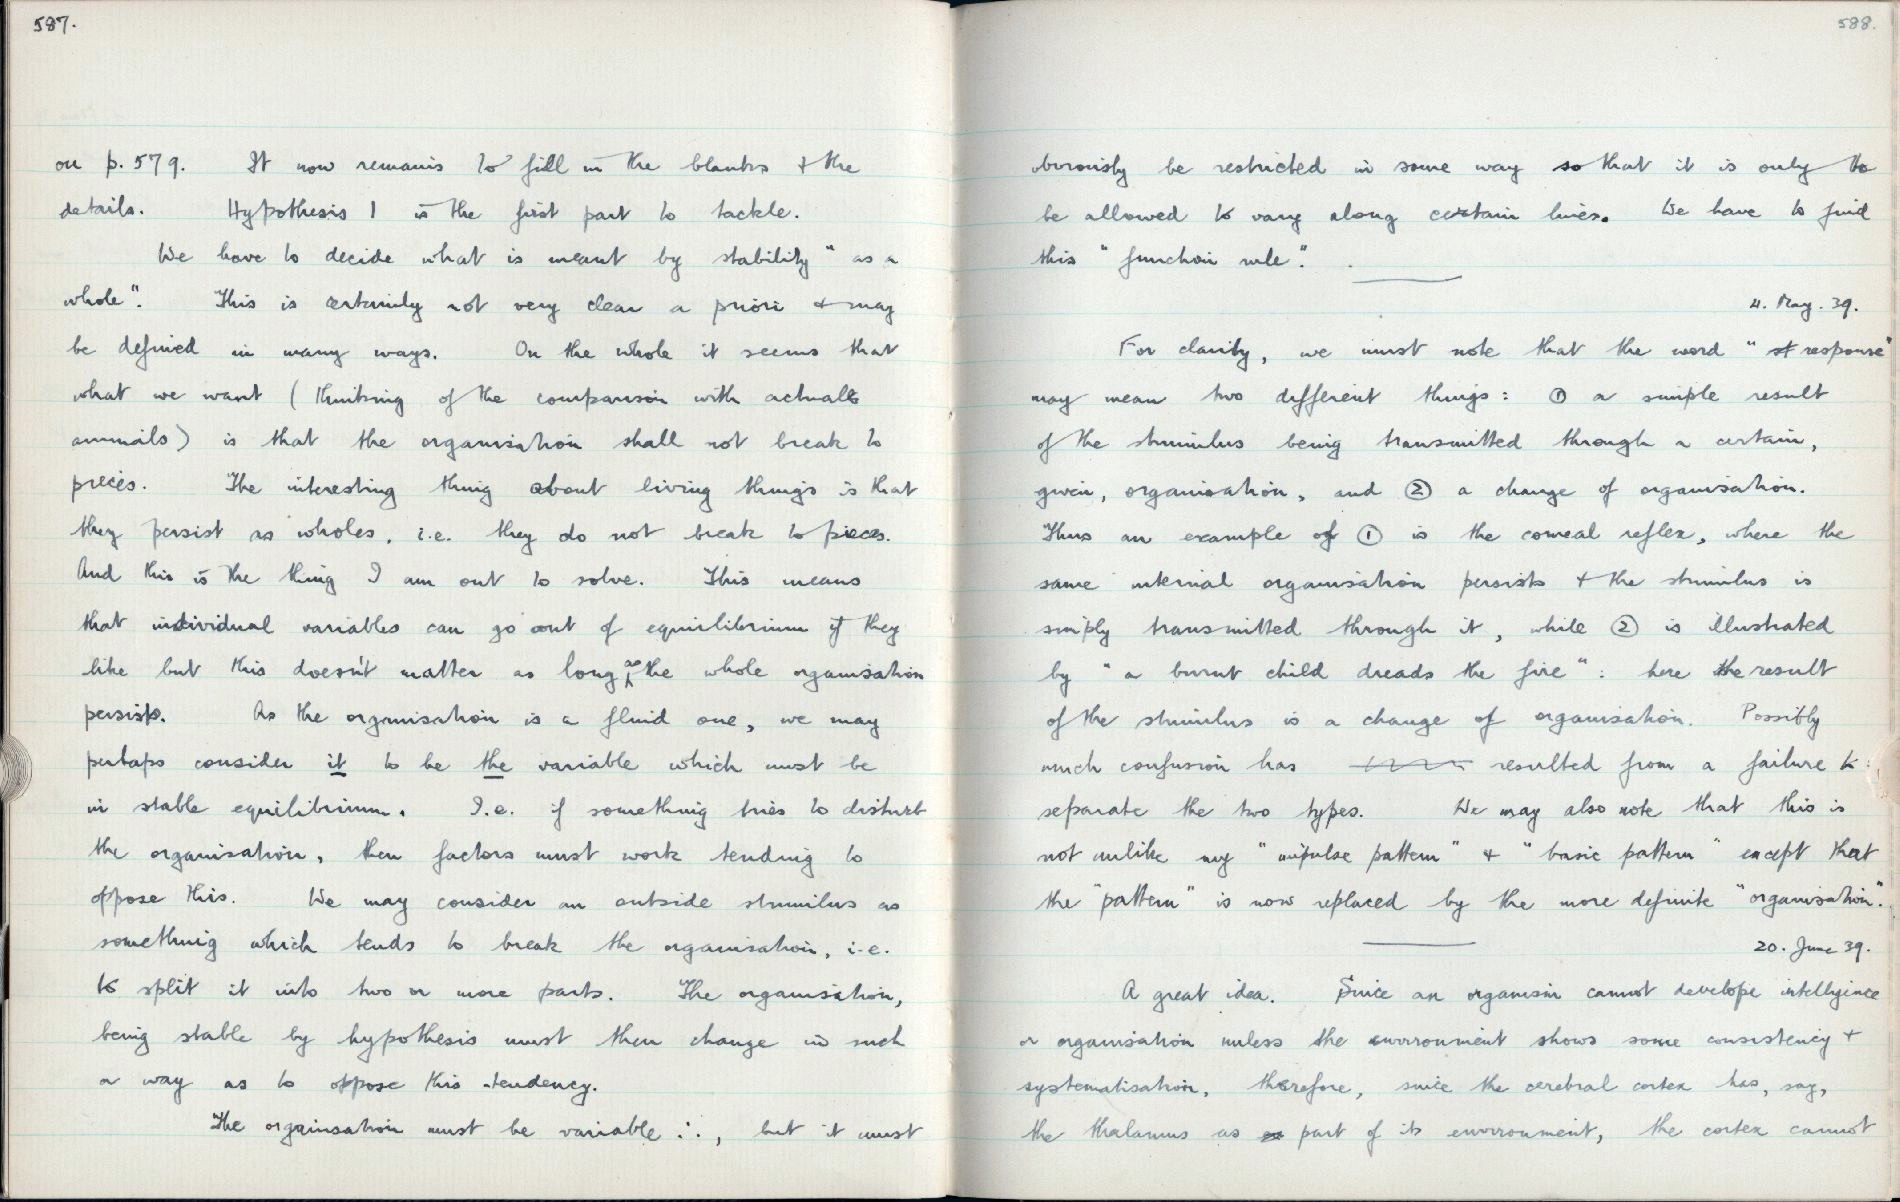 587.
on p. 579. It now remains to fill in the blanks + the
details. Hypothesis 1 is the first part to tackle.
We have to decide what is meant by stability "as a
whole". This is certainly not very clear a priori + may
be defined in many ways. On the whole it seems that
what we want (thinking of the comparison with actual
animals) is that the organisation shall not break to
pieces. The interesting thing about living things is that
they persist as wholes, i.e. they do not break to pieces.
And this is the thing I am out to solve. This means
that individual variables can go out of equilibrium if they
like but this doesn't matter as long as the whole organisation
persists. As the organisation is a fluid one, we may
perhaps consider it to be the variable which must be
in stable equilibrium. I.e. if something tries to disturb
the organisation, then factors must work tending to
oppose this. We may consider an outside stimulus as
something which tends to break the organisation, i.e.
to split it into two or more parts. The organisation,
being stable by hypothesis must then change in such
a way as to oppose this tendency.
The organisation must be variable ∴, but it must
588.
obviously be restricted in some way so that it is only to
be allowed to vary along certain lines. We have to find
this "function rule".
4. May. 39.
For clarity, we must note that the word "st response"
may mean two different things: ① a simple result
of the stimulus being transmitted through a certain,
given, organisation, and ② a change of organisation.
Thus an example of ① is the corneal reflex, where the
same internal organisation persists + the stimulus is
simply transmitted through it, while ② is illustrated
by "a burnt child dreads the fire": here the result
of the stimulus is a change of organisation. Possibly
much confusion has resulted from a failure to
separate the two types. We may also note that this is
not unlike my "impulse pattern" + "basic pattern" except that
the "pattern" is now replaced by the more definite "organisation".
20. June 39.
A great idea. Since an organism cannot develope intelligence
or organisation unless the environment shows some consistency +
systematisation, therefore, since the cerebral cortex has, say,
the thalamus as part of its environment, the cortex cannot